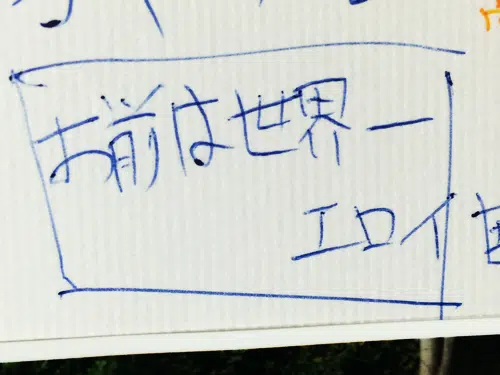 お前は世界一
エロイ